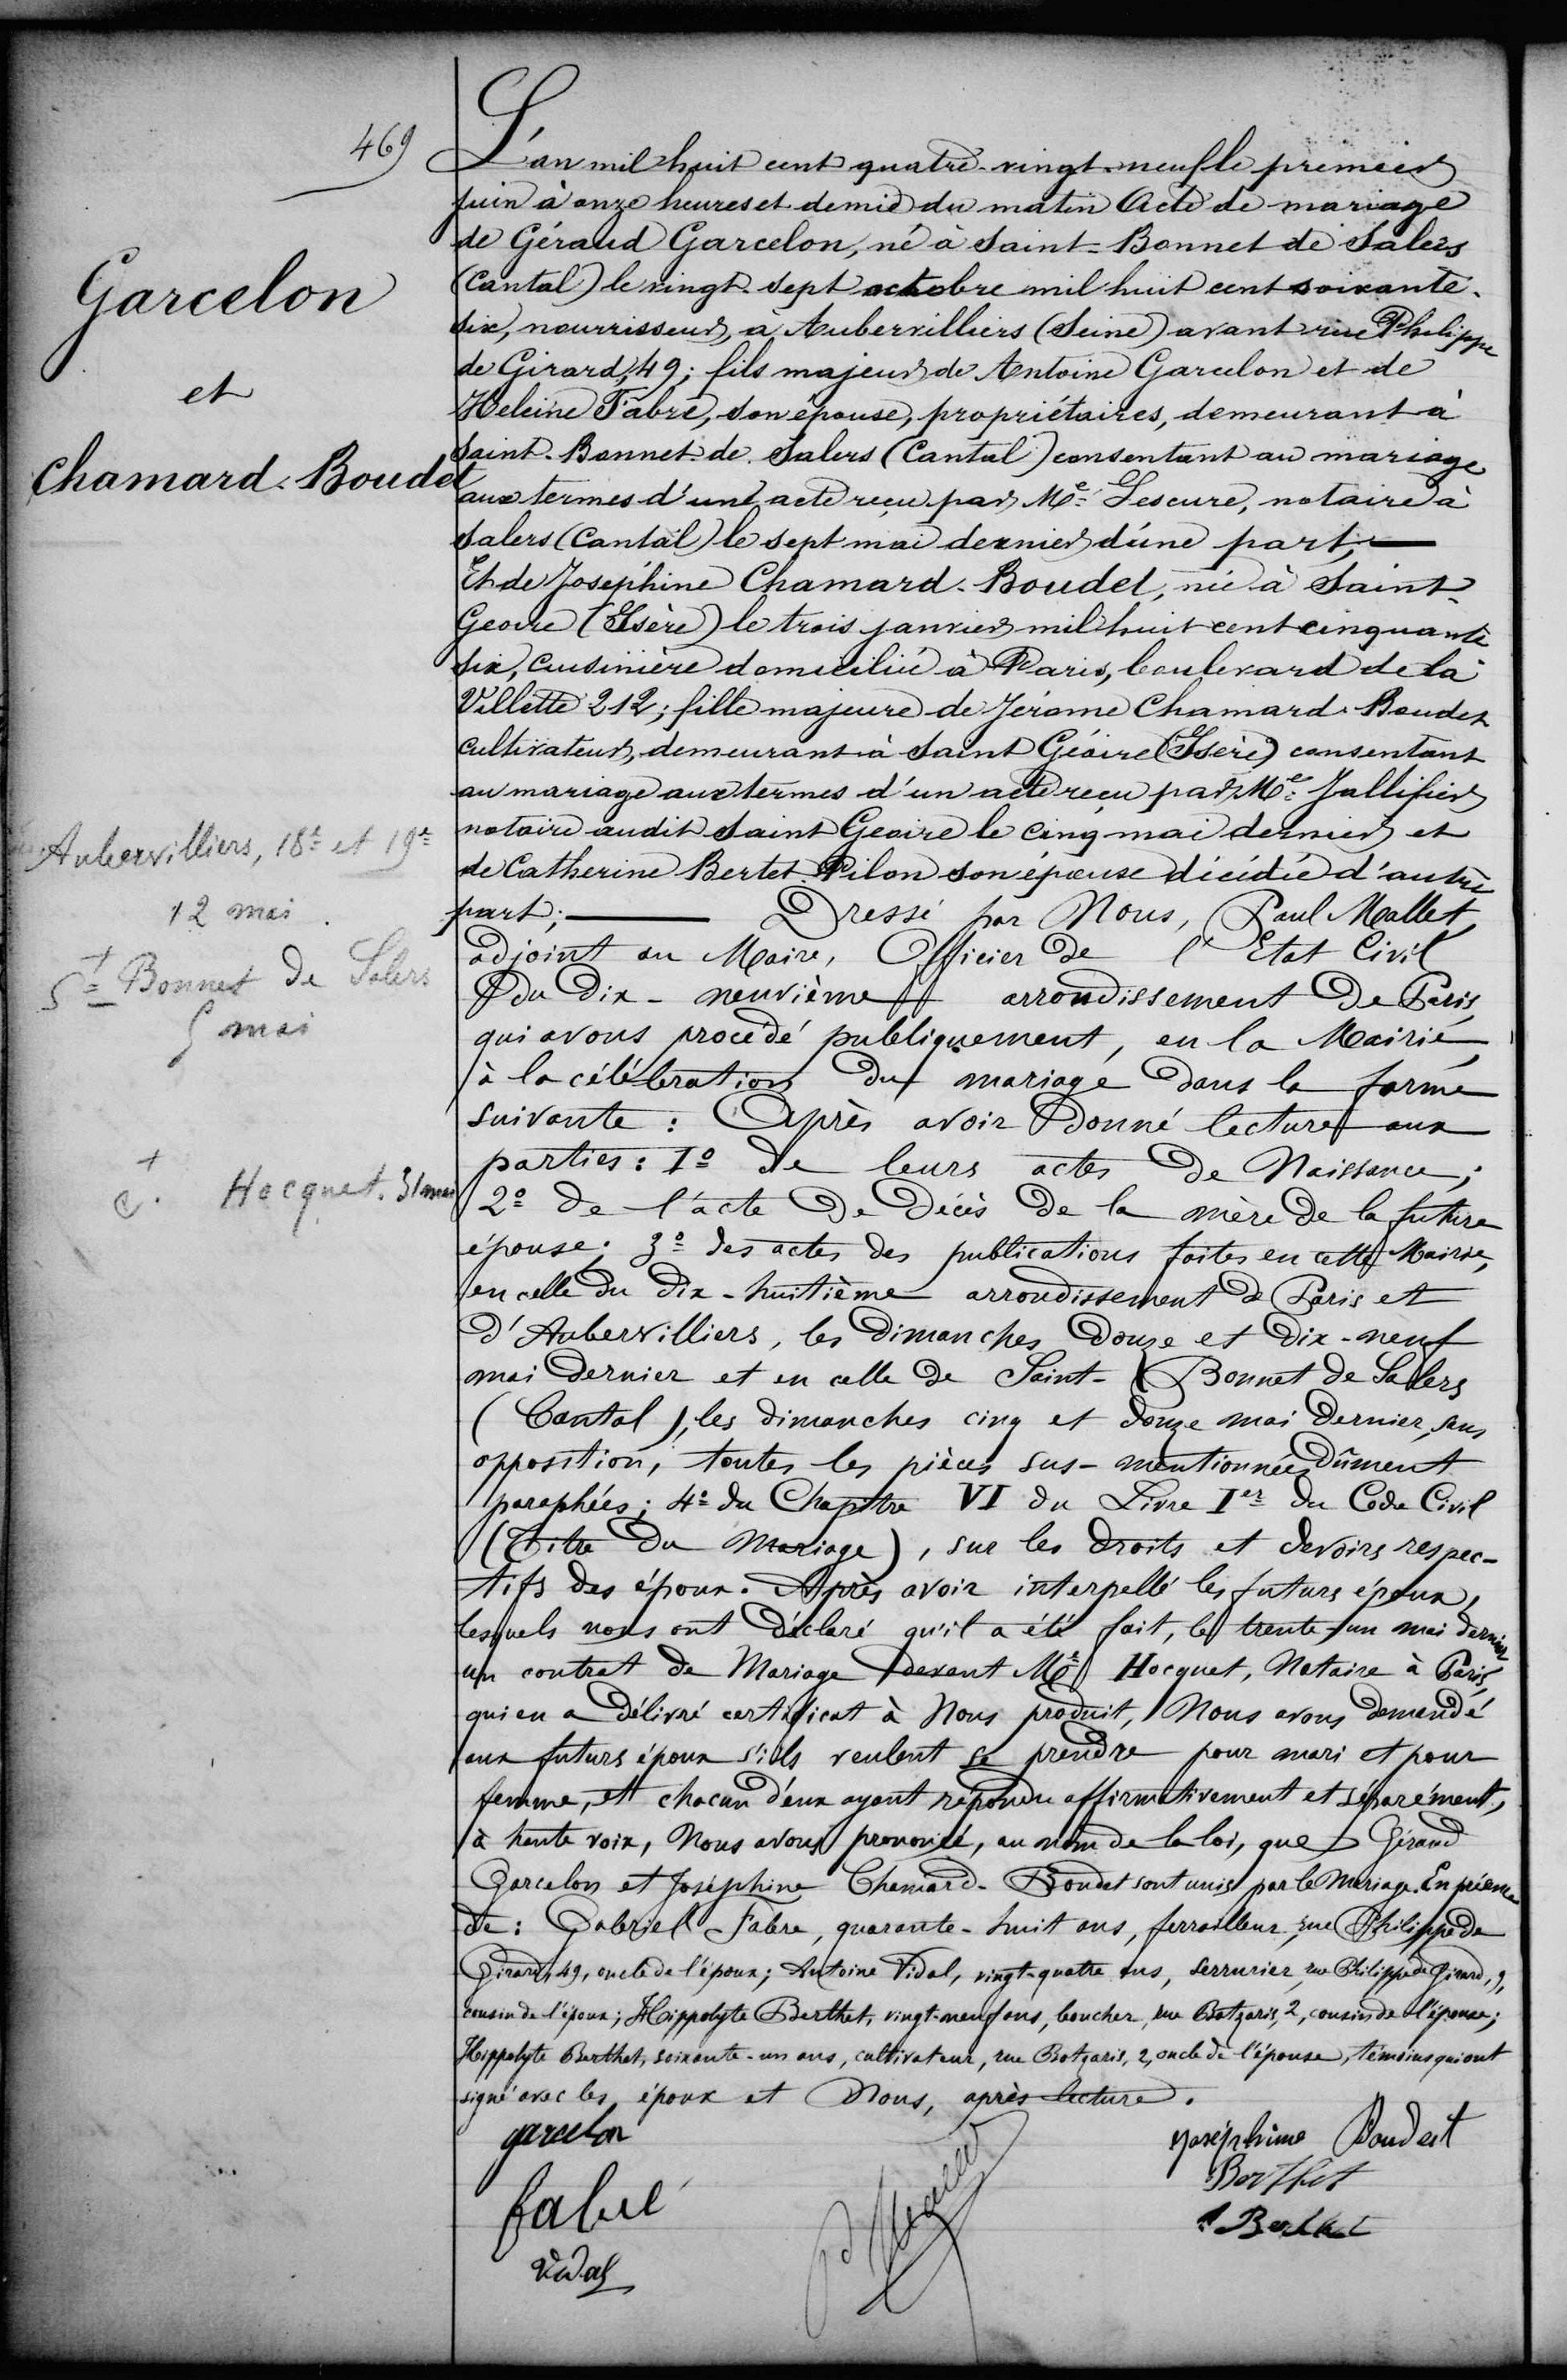 469
Garcelon
et
Chamard-Boudet
Aubervilliers, 18e et 19e
12 mai
St Bonnet de Salers
5 mai
c. Hocquet. 31 mai
L'an mil huit cent quatre-vingt-neuf le premier
juin à onze heures et demie du matin Acte de mariage
de Géraud Garcelon, né à Saint-Bonnet de Salers
(Cantal) le vingt-sept octobre mil huit cent soixante-
six, nourrisseur, à Aubervilliers (Seine) avant rue Philippe
de Girard, 49; fils majeur de Antoine Garcelon et de
Heleine Fabre, son épouse, propriétaires, demeurant à
Saint-Bonnet-de-Salers (Cantal) consentant au mariage
aux termes d'une acte reçu par Me Lescure, notaire à
Salers (Cantal) le sept mai dernier d'une part,
Et de Joséphine Chamard-Boudet, née à Saint-
Geoire (Isère) le trois janvier mil huit cent cinquante
six, cuisinière domiciliée à Paris, boulevard de la
Villette 212; fille majeure de Jérome Chamard-Boudet
cultivateur, demeurant à Saint Géoire (Isère) consentant
au mariage aux termes d'un acte reçu par Me Jallifier
notaire audit Saint Geoire le cinq mai dernier et
de Catherine Bertet-Pilon son épouse décédée d'autre
part; Dressé par Nous, Paul Mallet,
adjoint au Maire, Officier de l'Etat Civil
du dix-neuvième arrondissement de Paris,
qui avons procédé publiquement, en la Mairie,
à la célébration du mariage dans la forme
suivante : Après avoir donné lecture aux
parties : 1o de leurs actes de Naissance ;
2o de l'acte de décès de la mère de la future
épouse; 3o des actes des publications faites en cette Mairie,
en celle du dix-huitième arrondissement de Paris et
d'Aubervilliers, les dimanches douze et dix-neuf
mai dernier et en celle de Saint-Bonnet de Salers
(Cantal), les dimanches cinq et douze mai dernier, sans
opposition, toutes les pièces sus-mentionnées dûment
paraphées; 4o du Chapitre VI du Livre Ier du Code Civil
(Titre du Mariage), sur les droits et devoirs respec-
tifs des époux. Après avoir interpellé les futurs époux,
lesquels nous ont déclaré qu'il a été fait, le trente-un mai dernier
un contrat de Mariage devant Me Hocquet, Notaire à Paris,
qui en a délivré certificat à Nous produit, Nous avons demandé
aux futurs époux s'ils veulent se prendre pour mari et pour
femme, et chacun d'eux ayant répondu affirmativement et séparément,
à haute voix, Nous avons prononcé, au nom de la loi, que Géraud
Garcelon et Joséphine Chamard-Boudet sont unis par le Mariage. En présence
de : Gabriel Fabre, quarante-huit ans, ferrailleur, rue Philippe de
Girard, 49, oncle de l'époux; Antoine Vidal, vingt-quatre ans, serrurier, rue Philippe de Girard, 9,
cousin de l'époux; Hippolyte Berthet, vingt-neuf ans, boucher, rue Botzaris, 2, cousin de l'épouse;
Hippolyte Berthet, soixante-un ans, cultivateur, rue Botzaris, 2, oncle de l'épouse, témoins qui ont
signé avec les époux et Nous, après lecture.
garcelon
joséphine Boudest
Berthet
fabre
Berthet
Vidal